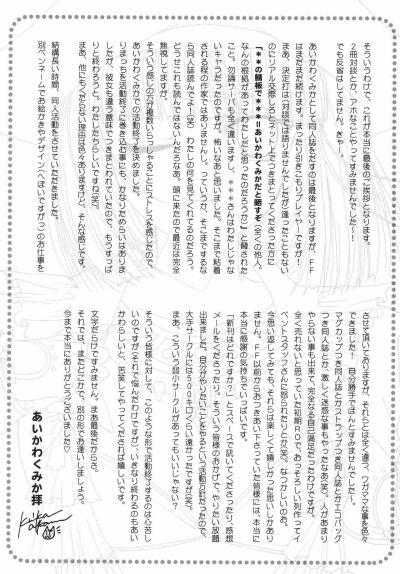 そういうわけで、これが本当に最後のご挨拶となります。
2冊対談とか、アホなことやってすみませんでした〜！
でも反省はしてません。きゃー！
あいかわくみかとして同人誌をだすのは最後となりますが、FF
はまだまだ続けます。まったり引きこもりプレイヤーですが！
まあ、決定打は（対談では語りませんでしたが）逢ったこともない
のにリアル交際しろとネット上でつきまとってくださった方に
「＊＊の顔板で＊＊＊＝あいかわくみかだと晒すぞ（全くの他人。
なんの根拠があってわたしだと思ったのだろうか）」と脅された
こと。勿論サーバも全く違いますし、＊＊＊さんはわたしじゃな
いキャラだったのですが、怖いなあと思いました。そこまで粘着
される程の作家ではありませんし。っていうか、そこまでするな
ら同人誌読んでよー（笑） わたしの何を見てくれてるのだろう。
どうせこれも読んではないんだろなあ。頭に来たので最近は完全
無視してますが。
そういう感じの方が複数いらっしゃることにストレスを感じたので、
あいかわくみかでの活動終了を決めました。
りまっちを活動終了に巻き込む事にも、かなりためらいはありま
したが、彼女も違う意味でつきまとわれていたので、もうすっぱ
りと終わろうと。わたしたちらしいですね（笑）。
まあ、他にもくだらない理由は色々ありますけど、そんな感じです。
結構長い時間、同人活動をさせていただきました。
別ペンネームでお絵かきやデザイン（へぼいですが）のお仕事を
させて頂いておりますが、それらとは全く違う、ワガママな事を色々
できました！ 自分勝手でほんとすみませんでした〜。
マグカップつき同人誌とかストラップつき同人誌とかエコバッグ
つき同人誌とか、激しく迷惑な事もやったなあ（笑）。人があまり
やらない事も出来て、完全なる自己満足だったわけですが。
全く売れないと思っていた初期ROで、あっそろしい列作ってイ
ベントスタッフさんに怒られたりとか（笑）。なつかしいのお。
今思い返してみても、それらは楽しくて嬉しかった思いしかあり
ません。FF以前からおつきあい下さっていた皆様には、本当に
本当に感謝の気持ちでいっぱいです。
「新刊はどれですか？」とスペースで訊いてくださったり、感想
メールをくださったり。そういう皆様のおかげで、やりたい放題
出来ました。自分がやりたいことをやるという活動方針だったので、
大手サークルには500キロくらい遠かったですが（笑）。
まあ、こういう弱小サークルがあってもいいじゃない？
そういう皆様に対して、このような形で活動終了するのは心苦し
いのですが（それで悩んだわけですが）、いきなり終わるのもあい
かわらしいと、苦笑してやってくだされば嬉しいです。
文字だらけですみません。まあ最後だからさ。
それでは、またどこかで、別の形でお逢いしましょう。
今まで本当にありがとうございました♡
あいかわくみか拝